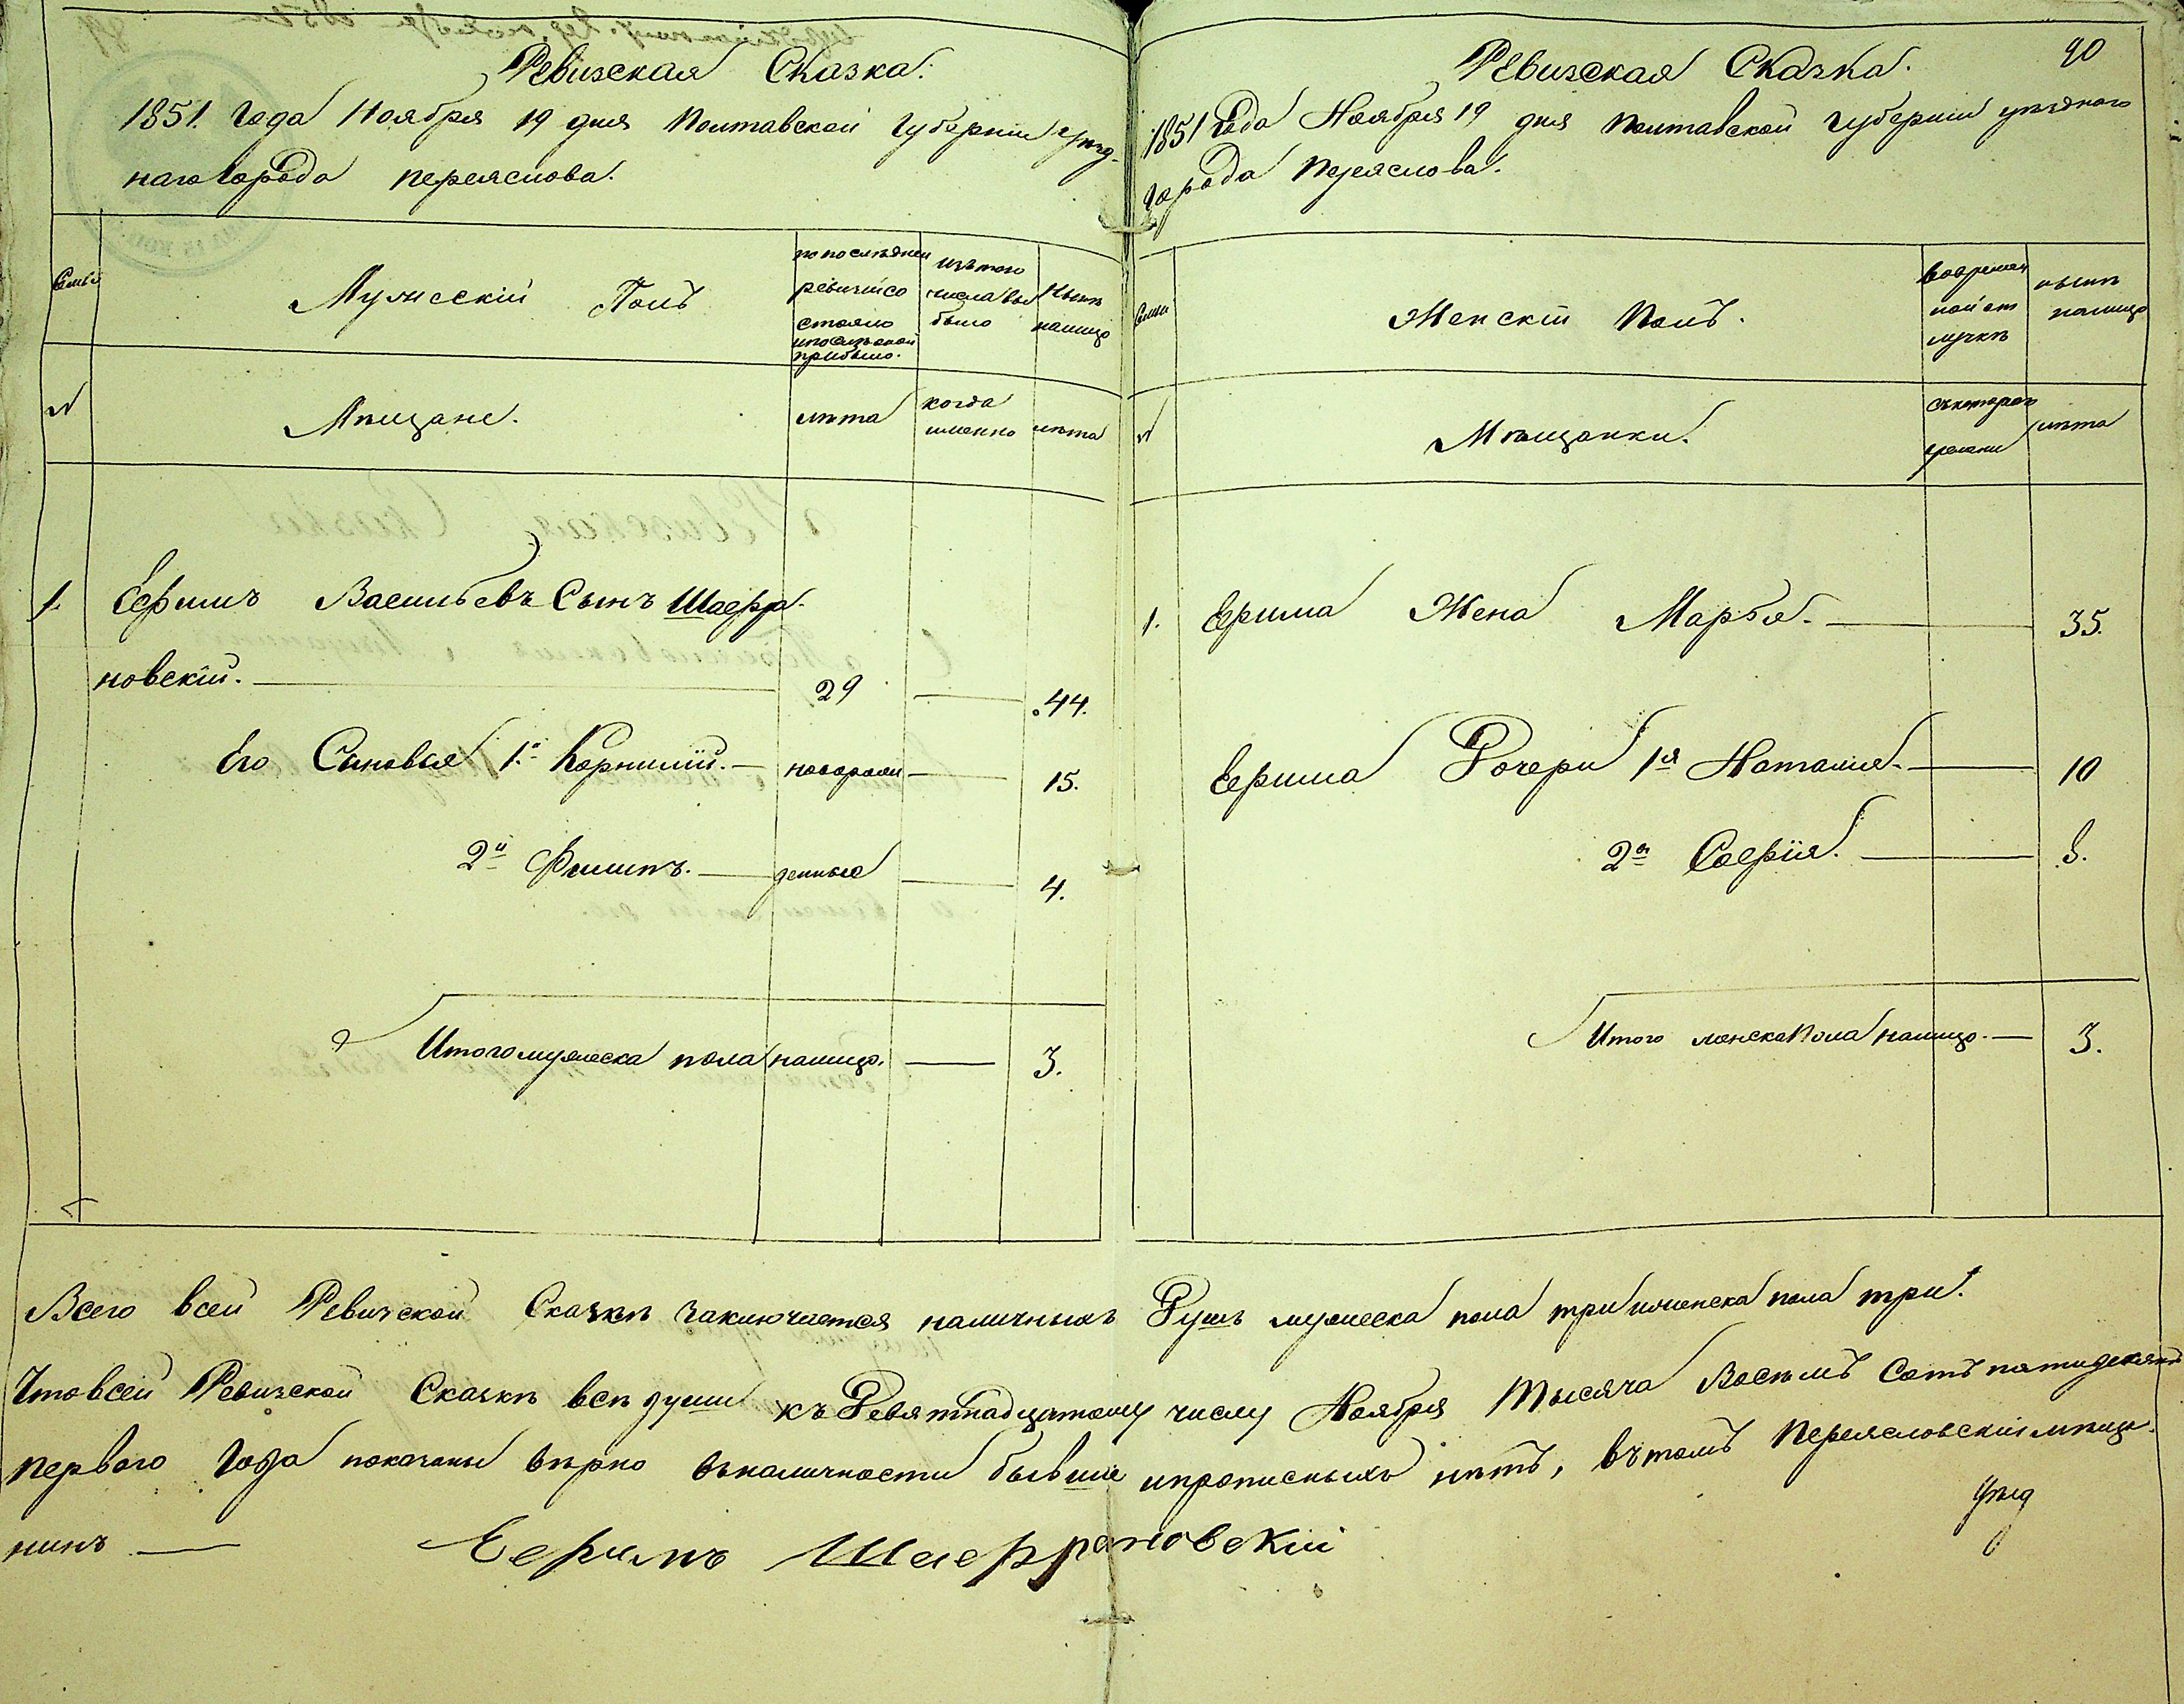 Ревизская Сказка.
1851. Года Ноября 19 дня Полтавской Губернии Уезд-
наго Города Переяслова.
Семьи
Мужескій Полъ
по последней
ревизіи со
стояло
и после оной
прибыло.
изъ того
числа вы
было
Ныне
налицо
№
Мещане.
лета
когда
именно
лета
1.
Ефимъ Васильевъ Сынъ Шафра-
новскій.
29
44.
Его Сыновья 1й Корнилій.
новорож
15.
2й Филипъ.
денные
4.
Итого мужеска пола налицо.
3.
90
Ревизская Сказка.
1851 Года Ноября 19 дня Полтавской Губернии уезднаго
Города Переяслова.
Семьи
Женскій Полъ.
во времен
ной от
лучке
ныне
налицо
№
Мещанки.
съ котораго
времени
лета
1.
Ефима Жена Марфа.
35.
Ефима Дочери 1я Наталия.
10
2я Софія.
8.
Итого женска Пола налицо.
3.
Всего в сей Ревизской Сказке заключается наличныхъ Душъ мужеска пола три и женска пола три.
Что в сей Ревизской Сказке все души къ Девятнадцатому числу Ноября Тысяча Восемъ Сотъ пятидесятъ
первого Года показаны верно в наличности бывшие и прописныхъ нетъ, въ томъ Переясловский мещa-
нинъ
Ефимъ Шафрановскій
Уезд